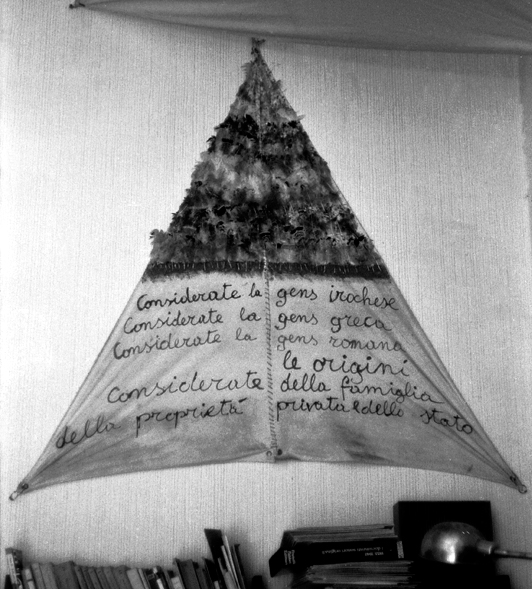 Considerate la gens irochese
Considerate la gens greca
Considerate la gens romana
le origini
Considerate della famiglia
della proprietà privata e dello stato